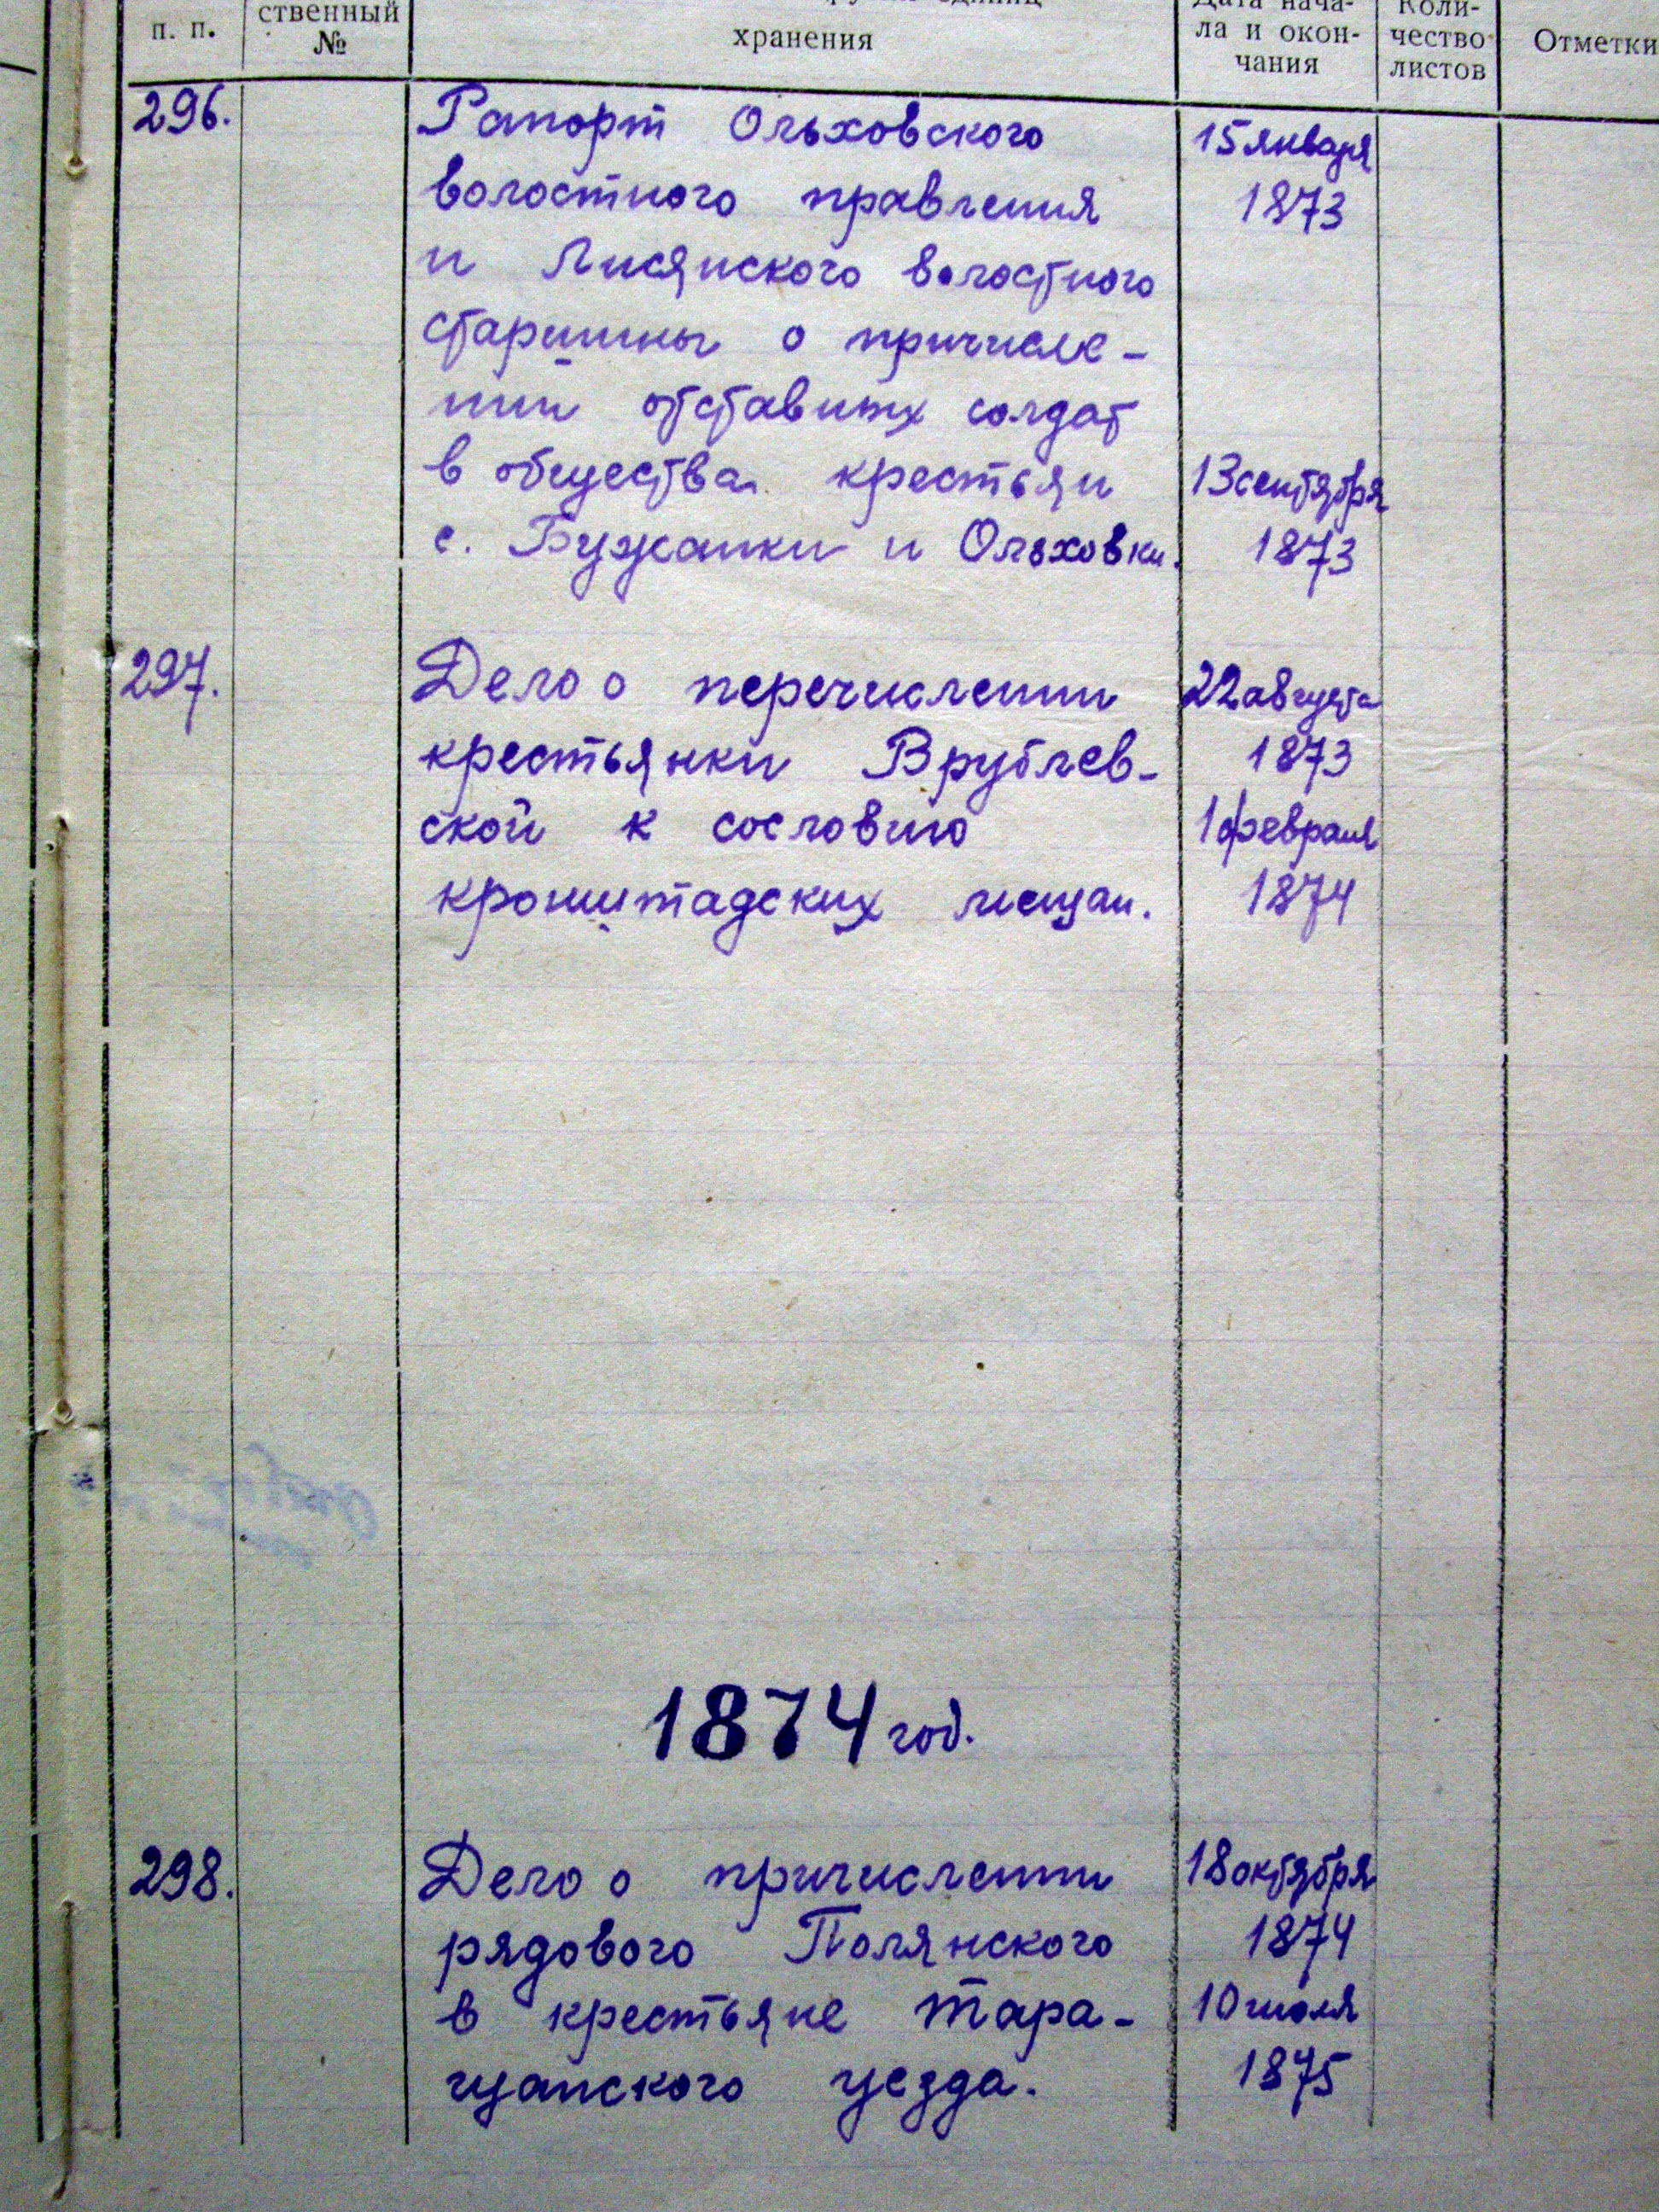 п. п.
ственный
№
хранения
Дата нача-
ла и окон-
чания
Коли-
чество
листов
Отметки
296.
Рапорт Ольховского
волостного правления
и Лисянского волостного
старшины о причисле-
нии отставных солдат
в общества крестьян
с. Бужанки и Ольховки.
15 января
1873
13 сентября
1873
297.
Дело о перечислении
крестьянки Врублев-
ской к сословию
кронштадских мещан.
22 августа
1873
1 февраля
1874
1874 год.
298.
Дело о причислении
рядового Полянского
в крестьяне Тара-
щанского уезда.
18 октября
1874
10 июля
1875